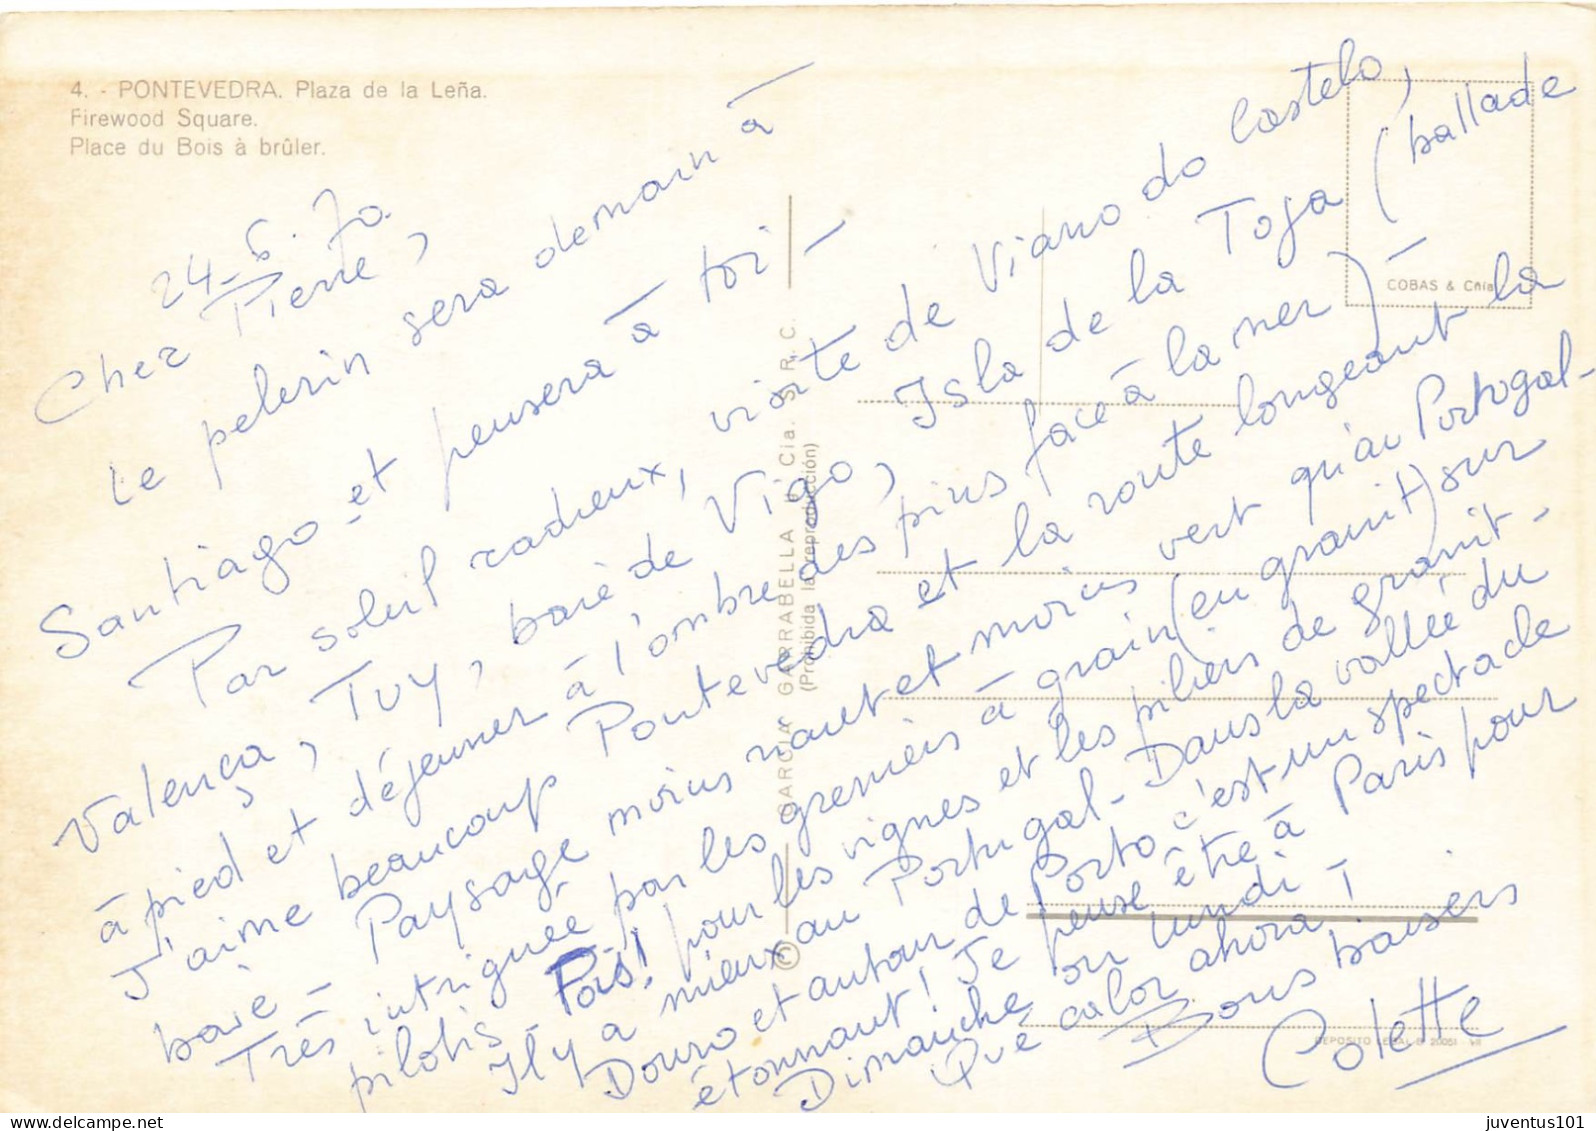 4. - PONTEVEDRA. Plaza de la Leña.
Firewood Square.
Place du Bois à brûler.
24-6.70
Cher Pierre,
Le pelerin sera demain à
Santiago et pensera à toi -
Par soleil radieux, visite de Viano do Castelo,
Valença, Tuy, baie de Vigo, Isla de la Toja (ballade
à pied et déjeuner à l'ombre des pins face à la mer) -
J'aime beaucoup Pontevedra et la route longeant la
baie - Paysage moins haut et moins vert qu'au Portogal -
Très intriguée par les greniers à grain (en granit) sur
pilotis Pois! pour les vignes et les piliers de granit -
Il y a mieux au Portugal - Dans la vallée du
Douro et autour de Porto c'est un spectacle
étonnant! Je pense être à Paris pour
Dimanche ou lundi -
Qué calor ahora!
Bons baisers
Colette
© GARCIA GARRABELLA y Cia. S. R. C.
(Prohibida la reproducción)
COBAS & Cñia
DEPOSITO LEGAL B. 20051 - VII
juventus101